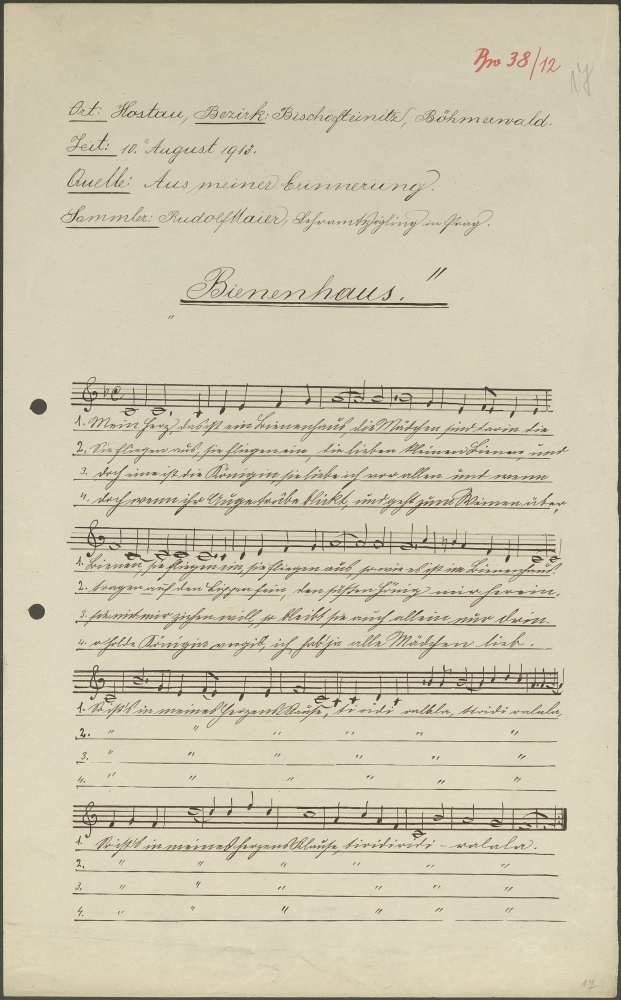 Pro 38/12
17
Ort: Hostau, Bezirk: Bischofteinitz, Böhmerwald.
Zeit: 10. August 1913.
Quelle: Aus meiner Erinnerung.
Sammler: Rudolf Maier, Lehramtszögling in Prag.
„Bienenhaus.“
1. Mein Herz, das ist ein Bienenhaus, die Mädchen sind darin die
2. Sie fliegen aus, sie fliegen ein, die lieben kleinen Bienen, und
3. Doch eine ist die Königin, sie liebe ich vor allen und wenn
4. Doch wenn ihr Auge trübe blickt, und geht zum Weinen über,
1. Bienen, sie fliegen ein, sie fliegen aus, so wie es ist im Bienenhaus.
2. tragen auf den Lippen fein, den süßten Honig mir herein.
3. sie mit mir ziehen will, so bleibt sie auch allein nur drin.
4. o holde Königin vergib, ich hab ja alle Mädchen lieb.
1. So ist's in meines Herzens Klause, tiridi ralala, tiridi ralala,
2. " " " " " "
3. " " " " " "
4. " " " " " "
1. So ist's in meines Herzens Klause, tiridiridi - ralala.
2. " " " " " "
3. " " " " " "
4. " " " " " "
17